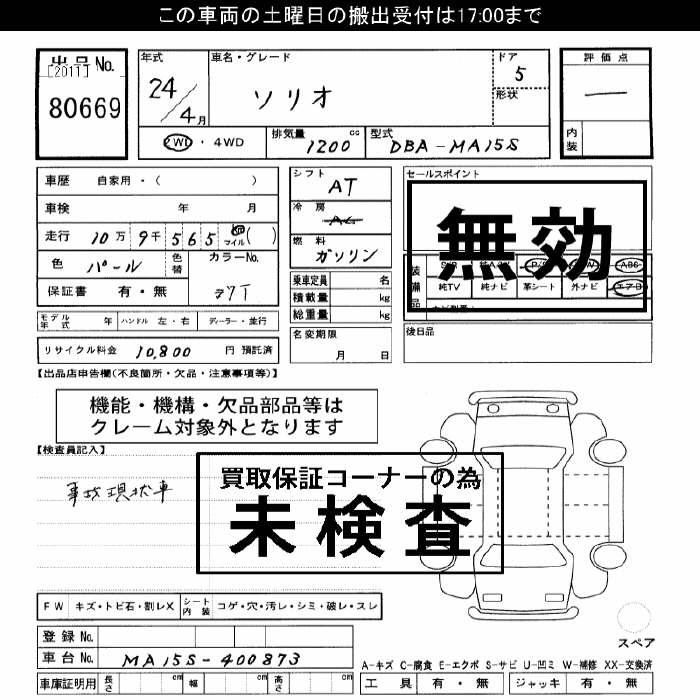 この車両の土曜日の搬出受付は17:00まで
出品No.
[2011]
80669
年式
24/4月
車名・グレード
ソリオ
ドア
5
形状
評価点
―
内装
2WD ・ 4WD
排気量
1200 cc
型式
DBA-MA15S
車歴 自家用・( )
車検 年 月
走行 10万 9千 5 6 5 マイル( )
色 パール
色替
カラーNo.
保証書 有・無
Z7T
モデル年式 年 ハンドル 左・右 ディーラー・並行
リサイクル料金 10,800 円 預託済
シフト
AT
冷房
AC
燃料
ガソリン
乗車定員 名
積載量 kg
総重量 kg
名変期限
月 日
セールスポイント
無効
装備品
S/R 純AW P/S P/W ABS
純TV 純ナビ 革シート 外ナビ エアB
後日品
【出品店申告欄(不良箇所・欠品・注意事項等)】
機能・機構・欠品部品等は
クレーム対象外となります
【検査員記入】
事故現状車
買取保証コーナーの為
未検査
FW キズ・トビ石・割レX シート内装 コゲ・穴・汚レ・シミ・破レ・スレ
登録No.
車台No. MA15S-400873
車庫証明用 長さ cm 幅 cm 高さ cm
スペア
A-キズ C-腐食 E-エクボ S-サビ U-凹ミ W-補修 XX-交換済
工具 有・無 ジャッキ 有・無